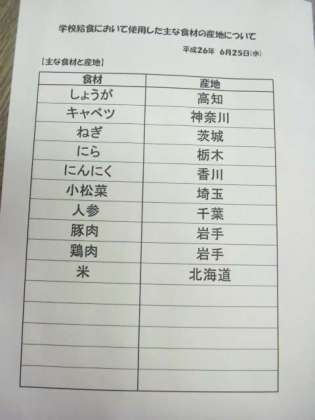 学校給食において使用した主な食材の産地について
平成26年 6月25日(水)
【主な食材と産地】
食材 産地
しょうが 高知
キャベツ 神奈川
ねぎ 茨城
にら 栃木
にんにく 香川
小松菜 埼玉
人参 千葉
豚肉 岩手
鶏肉 岩手
米 北海道